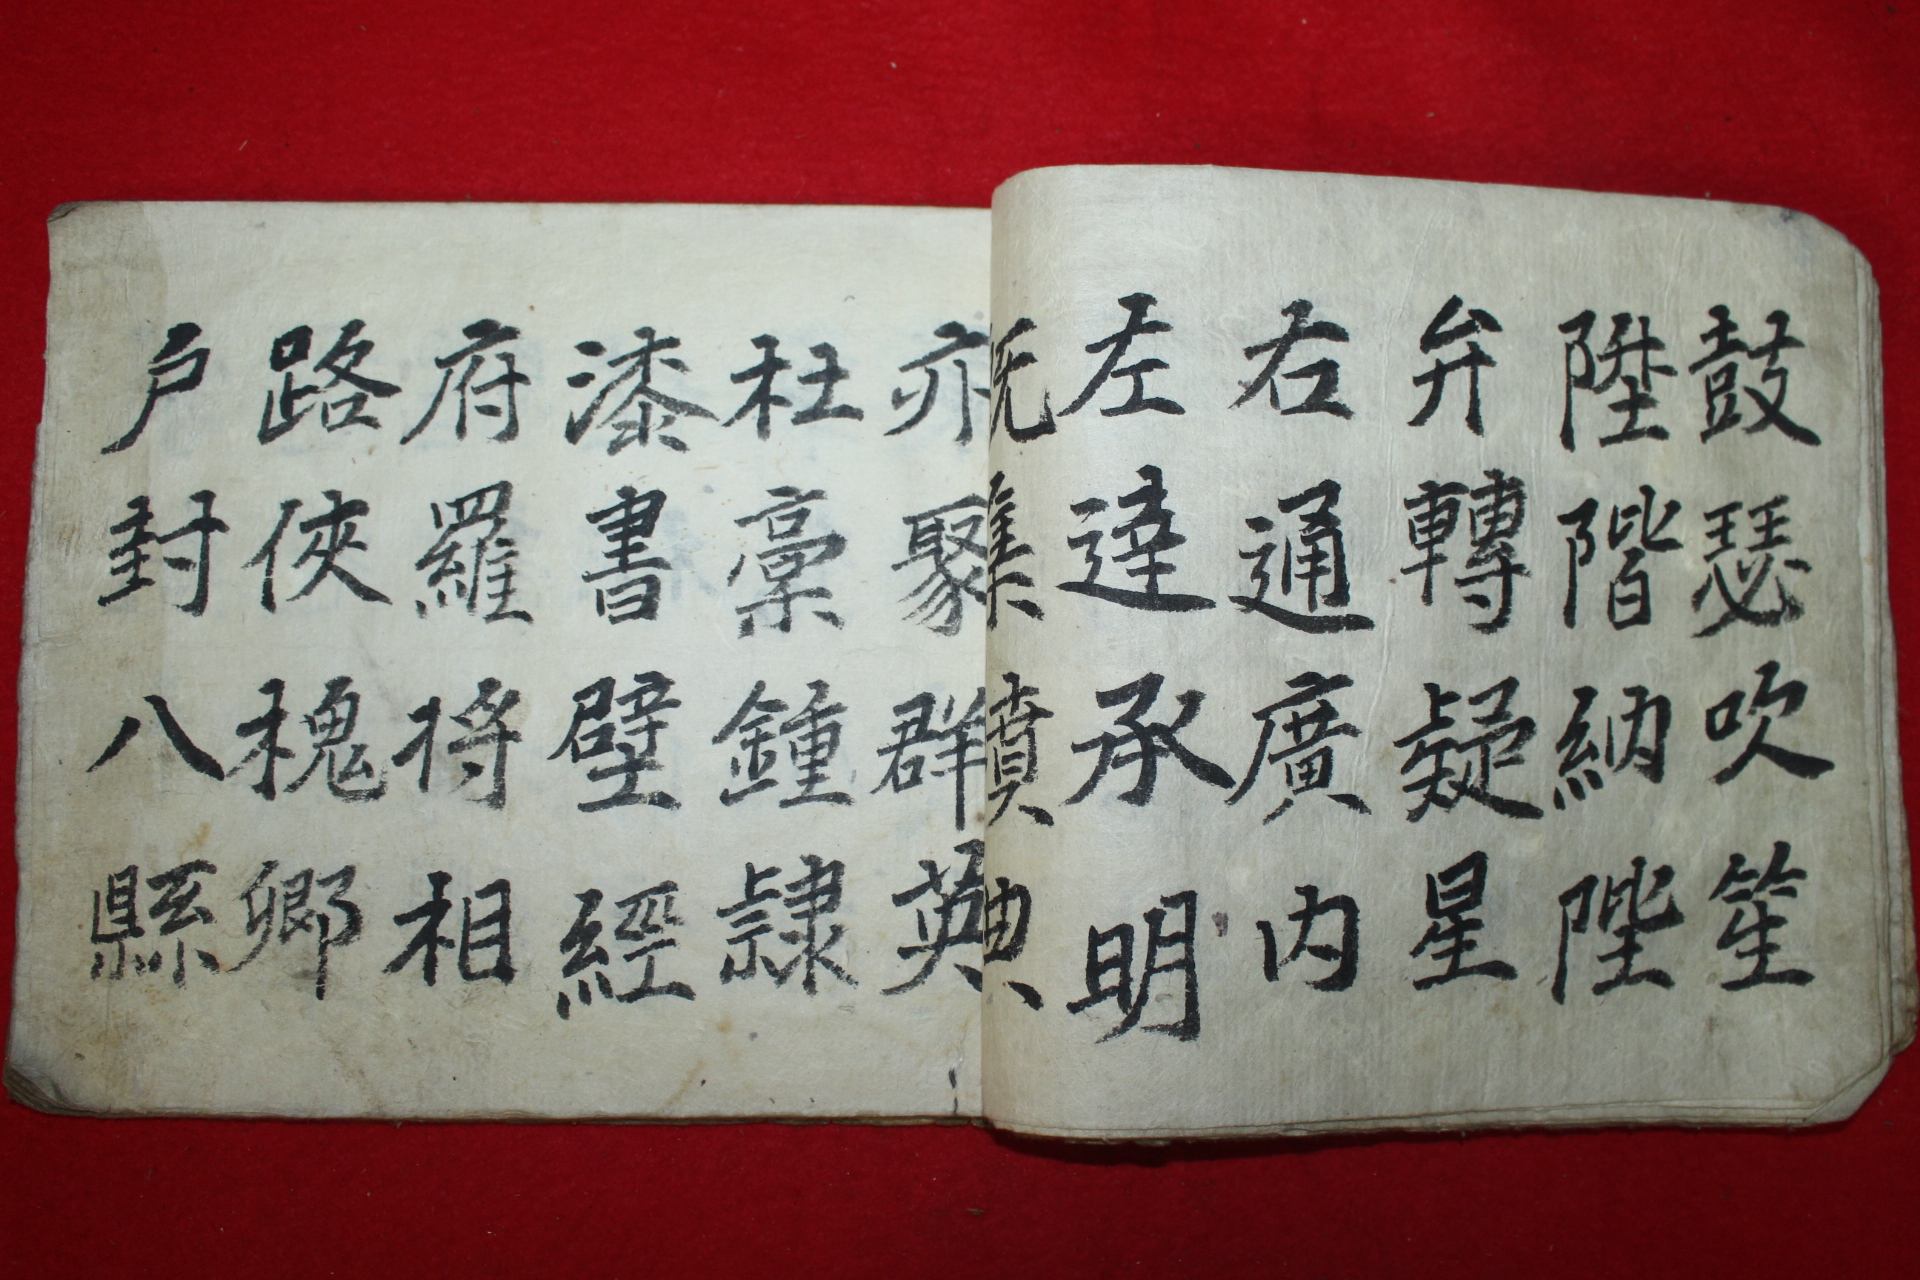 鼓瑟吹笙
陞階納陛
弁轉疑星
右通廣內
左達承明
既集墳典
亦聚群英
杜稾鍾隷
漆書壁經
府羅将相
路俠槐卿
戶封八縣